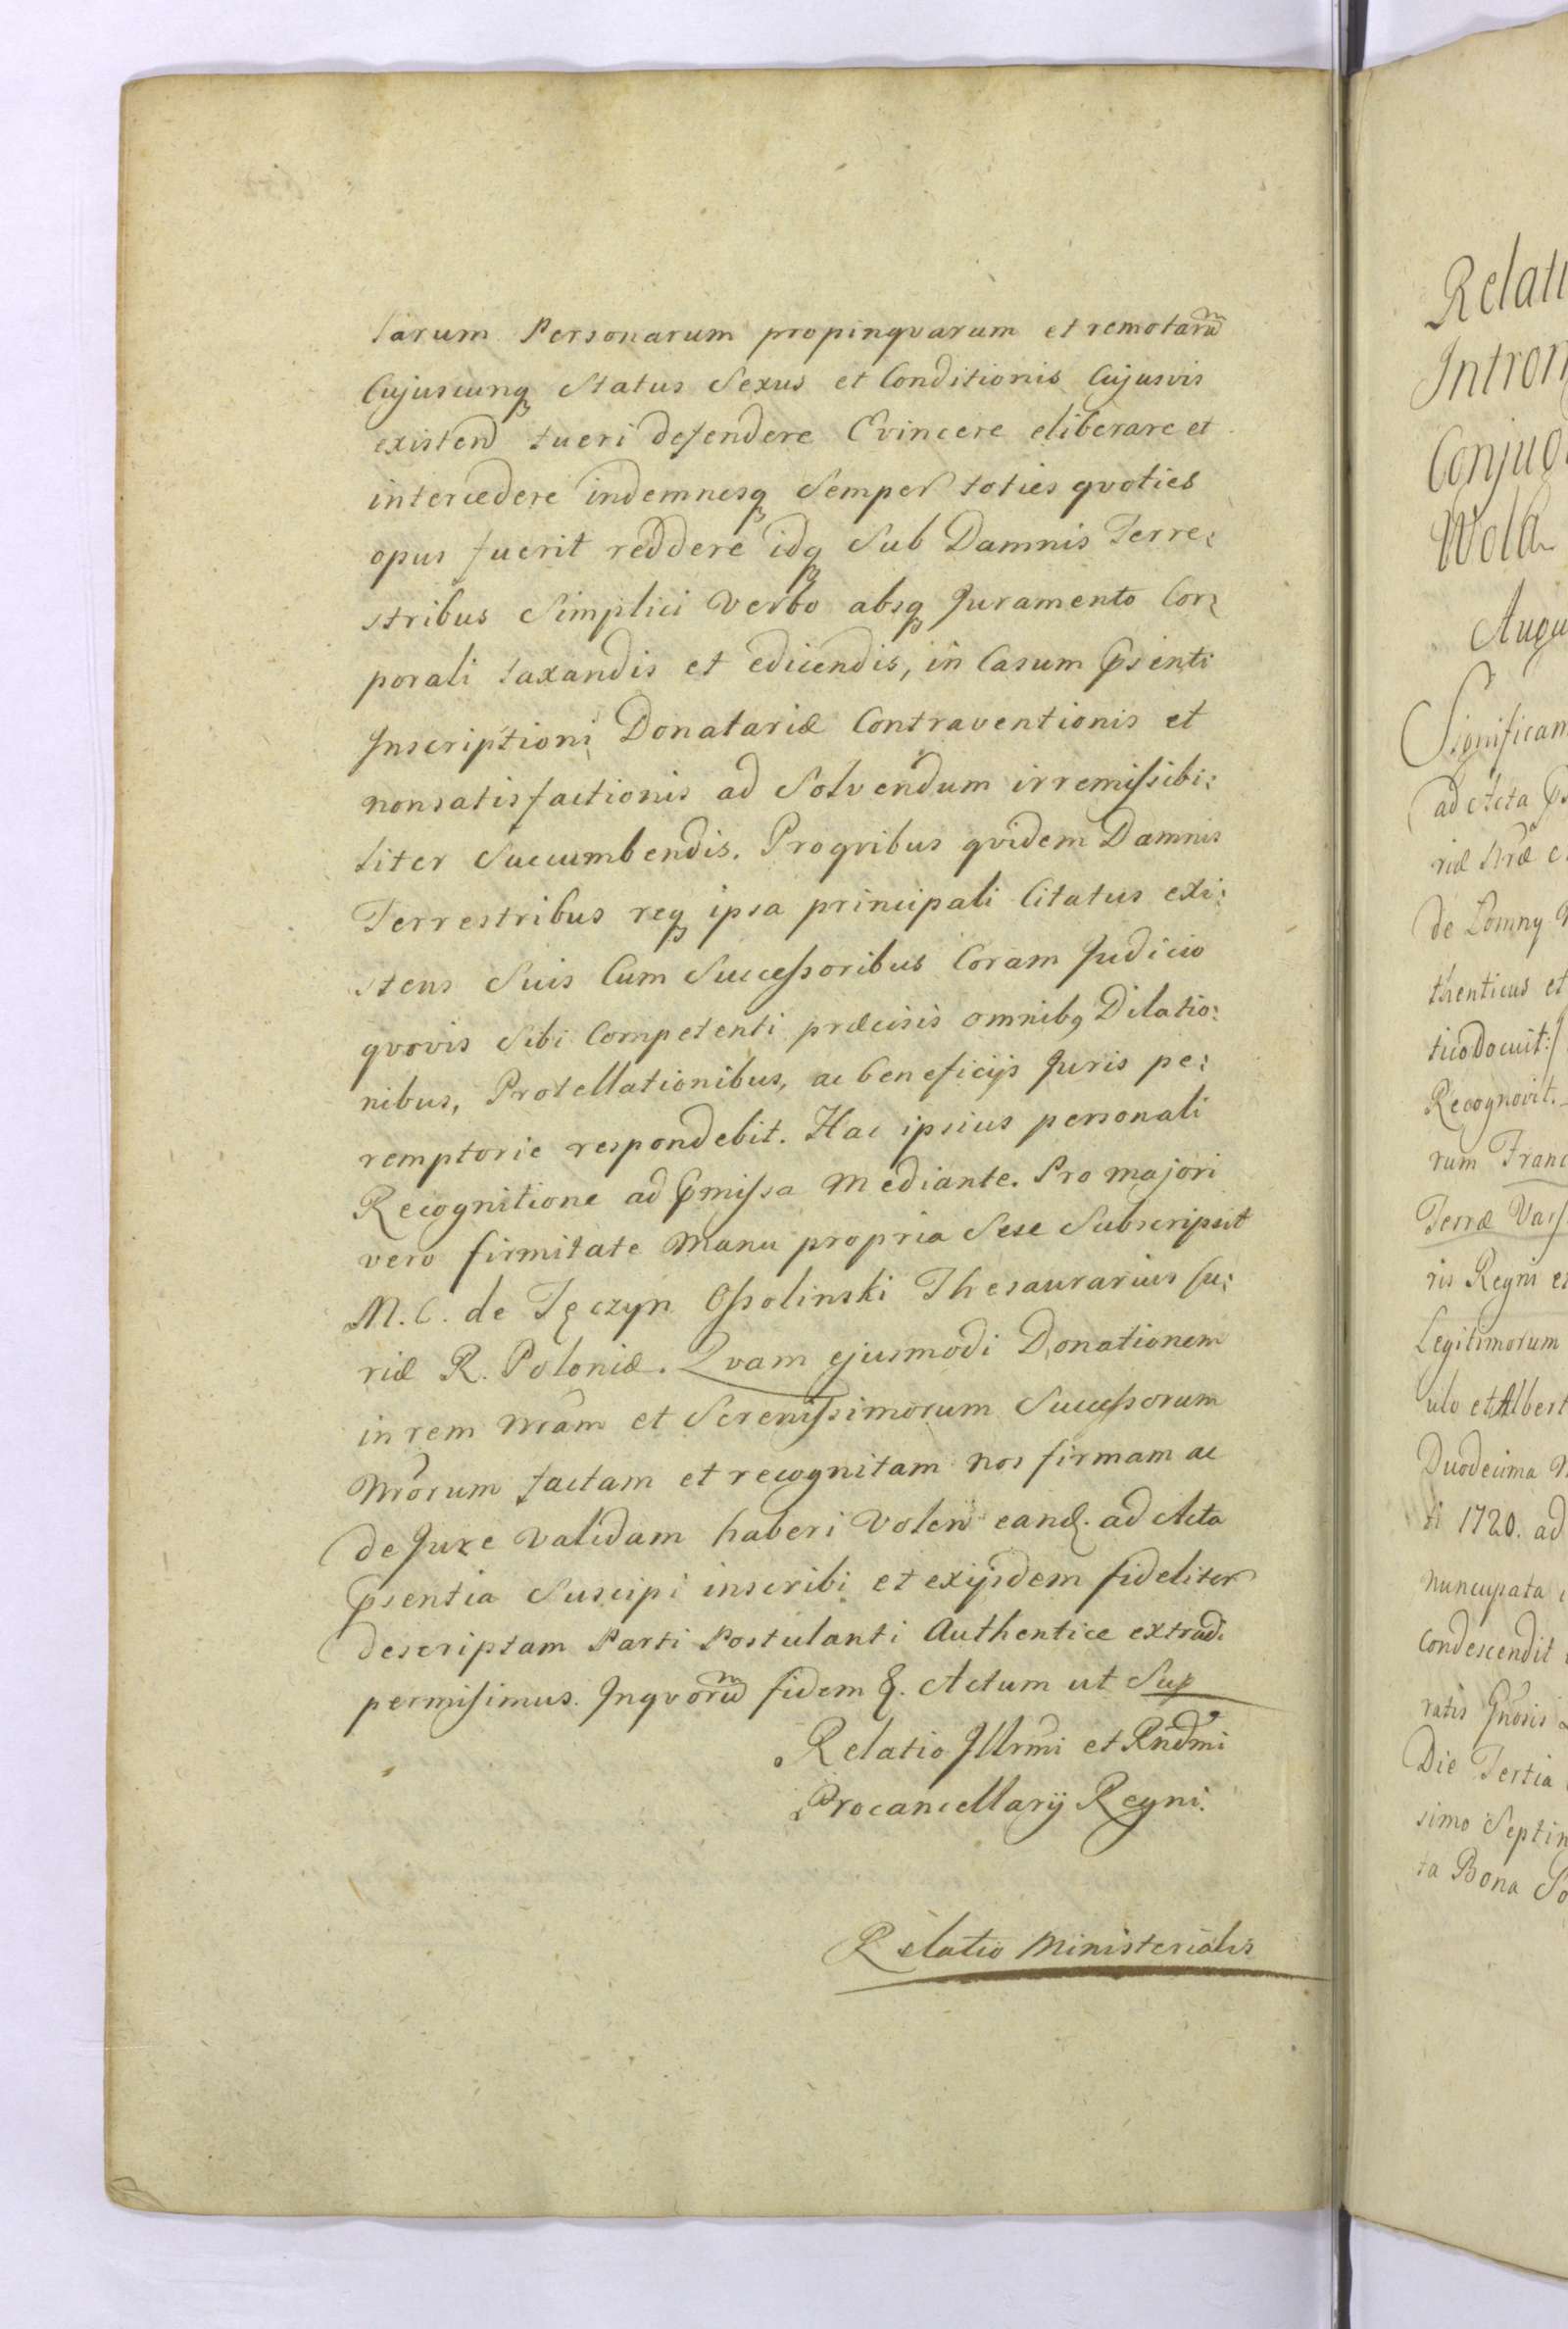 larum Personarum propinqvarum et remotaru͠
Cujuscunq Status Sexus et Conditionis Cujusvis
existen tueri defendere Evincere eliberare et
intercedere indemnesq Semper toties qvoties
opus fuerit reddere idq Sub Damnis Terre:
stribus Simplici Verbo absq Juramento Cor:
porali taxandis et edicendis, in Casum Psenti
Inscriptioni Donatariæ Contraventionis et
nonsatisfactionis ad Solvendum irremissibi:
liter Succumbendis. Proqvibus qvidem Damnis
Terrestribus req ipsa principali Citatus exi:
stens Suis Cum Successoribus Coram Judicio
qvovis Sibi Competenti præcisis omnibq Dilatio:
nibus, Protellationibus, ac beneficijs Juris pe:
remptorie respondebit. Hac ipsius personali
Recognitione ad Pmissa Mediante. Pro majori
vero firmitate Manu propria Sese Subscripsit
M. C. de Tęczyn Ossolinski Thesaurarius Cu:
riæ R. Poloniæ. Qvam ejusmodi Donationem
in rem Nram et Serenissimorum Successorum
Nrorum factam et recognitam nos firmam ac
de Jure Validam haberi Volen eand. ad Acta
Psentia Suscipi inscribi et exijsdem fideliter
descriptam Parti Postulanti Authentice extradi
permisimus. Inqvoru͠ fidem &. Actum ut Sup
Relatio Illrmi et Rndmi
Procancellarij Regni.
Relatio Ministerialis
Relati
Intron
Conjug
Wola
Augu
Significam
ad Acta Ps
riæ Nræ c
de Lomny
thenticus et
tico Docuit:/
Recognovit.
rum Franc
Terræ Vars
ris Regni et
Legitimorum
ulo et Albert
Duodecima
1720. ad
nuncupata
Condescendit
ratis Gnosis
Die Tertia
simo Septim
ta Bona So